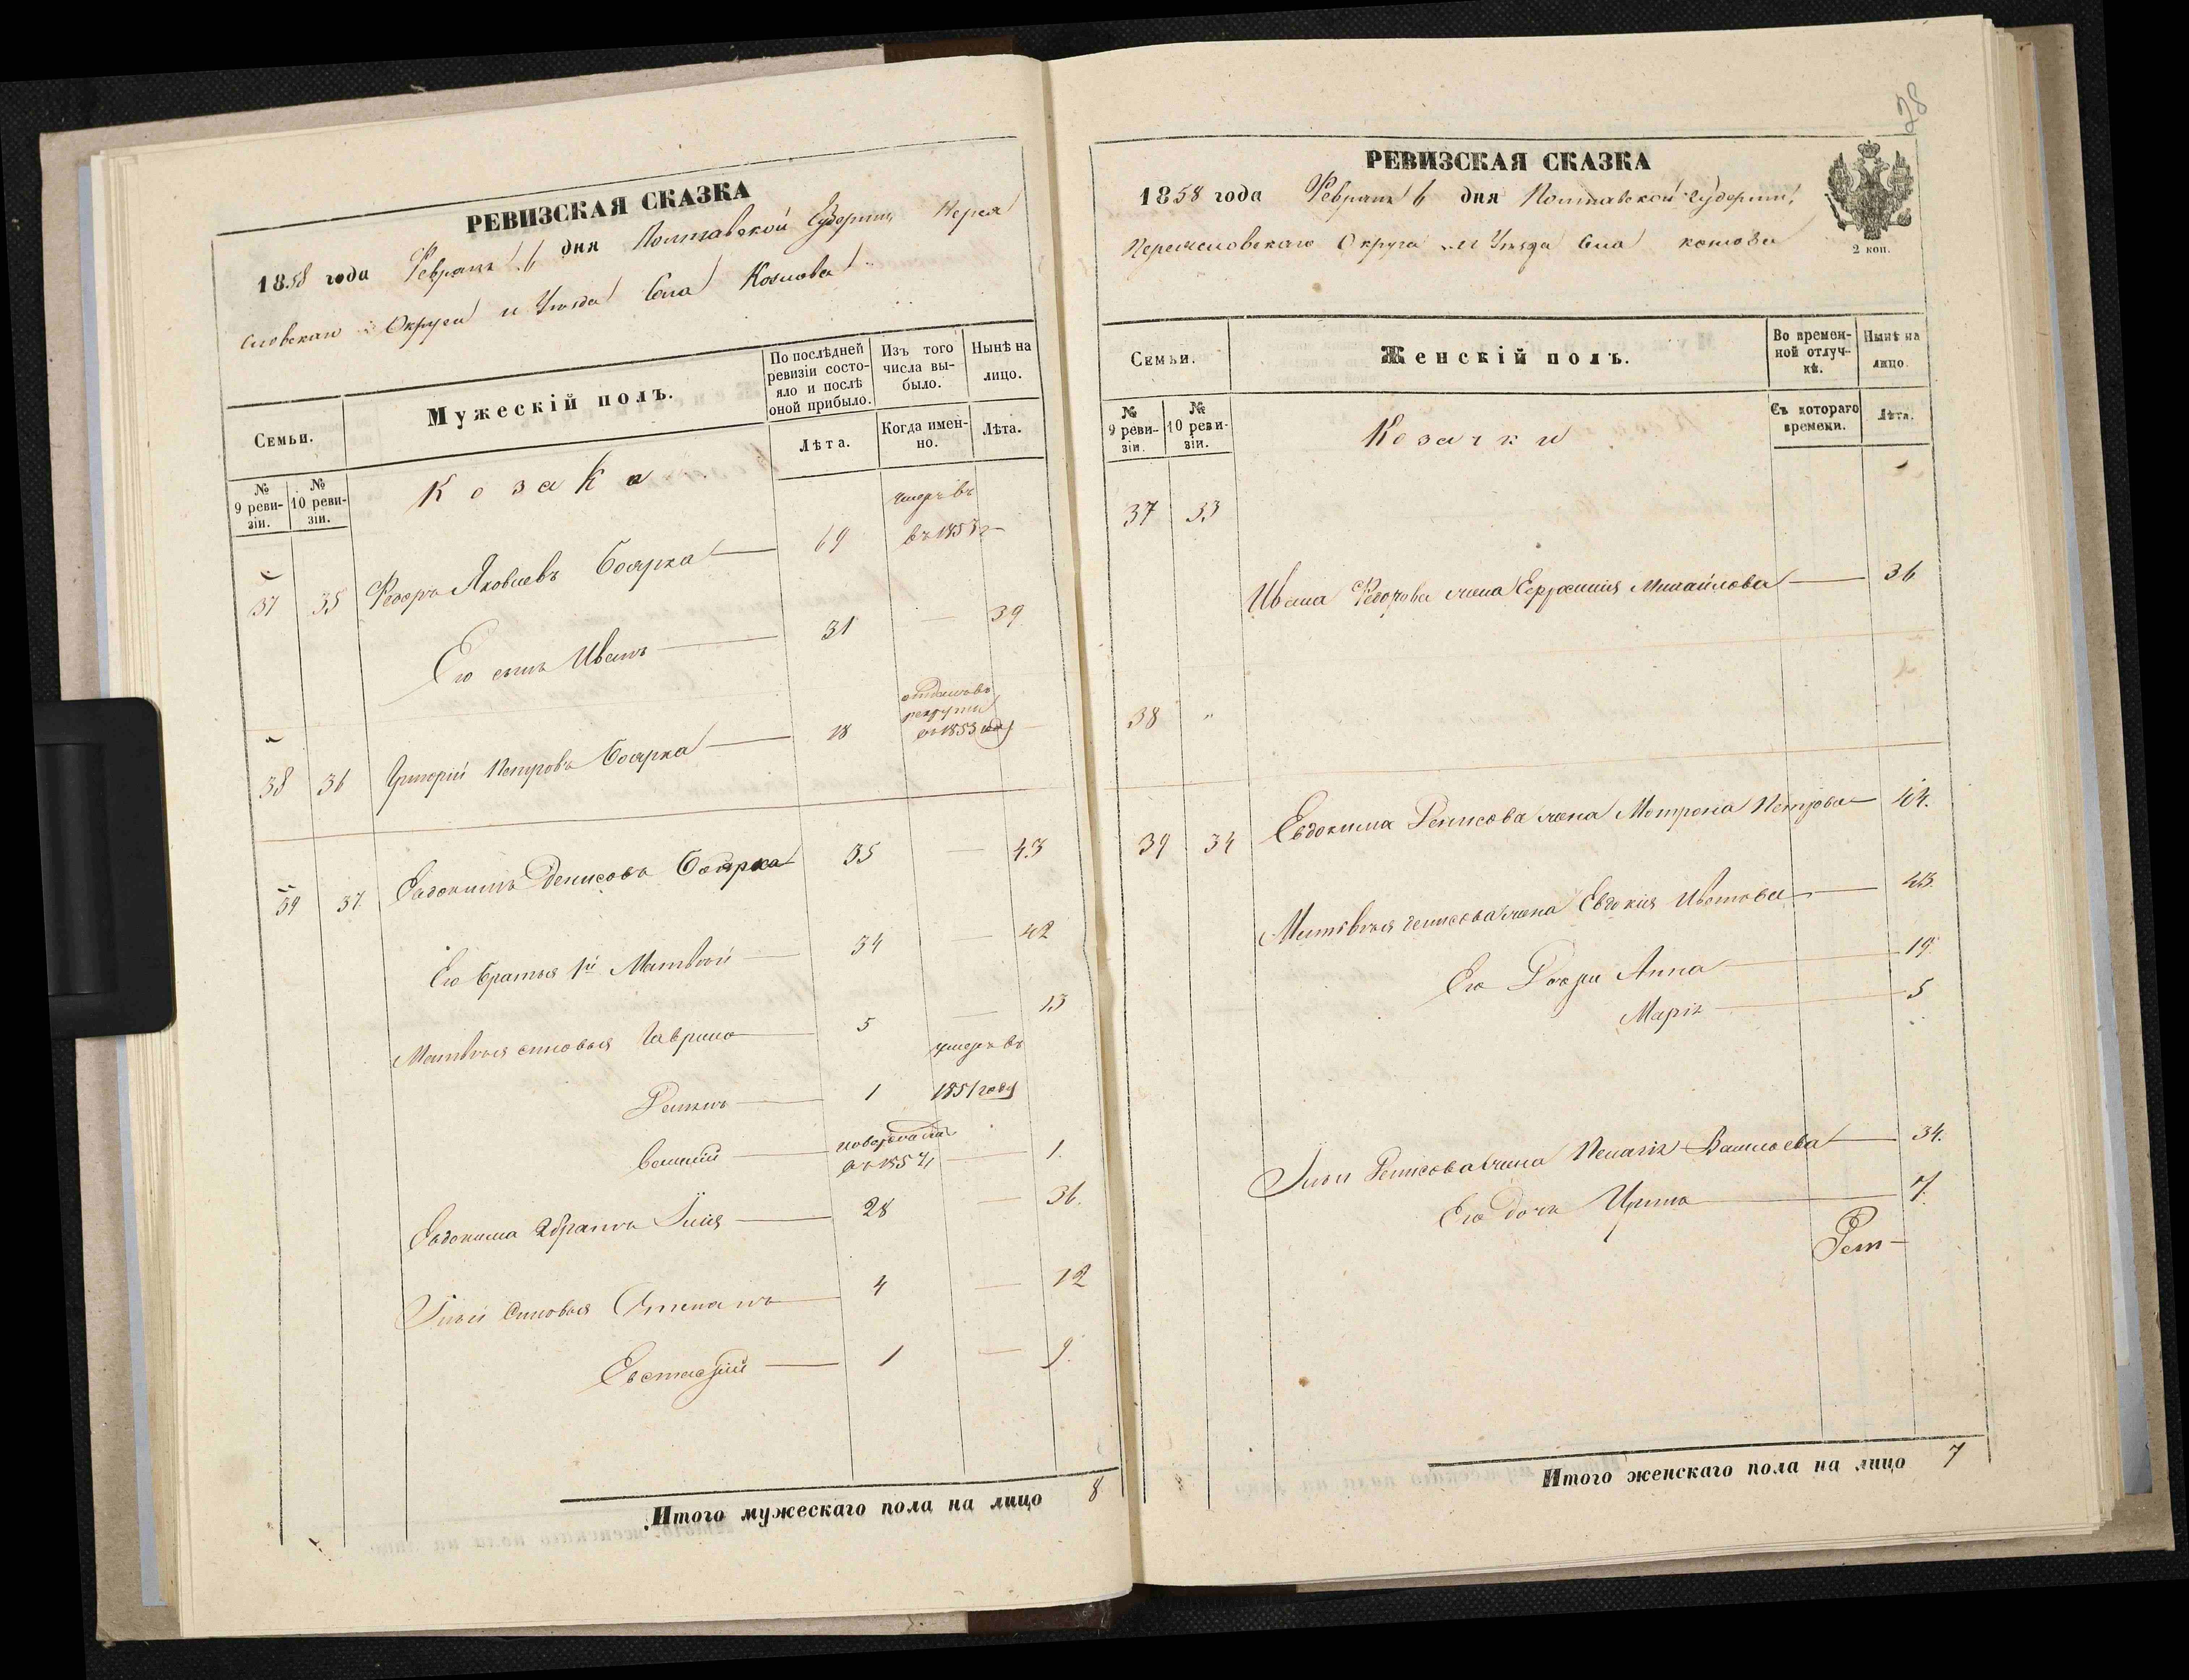 РЕВИЗСКАЯ СКАЗКА
1858 года Февраля 6 дня Полтавской Губерніи Перея
словскаго Округа и Уѣзда Села Козлова
Семьи.
Мужескій полъ.
По послѣдней ревизіи состояло и послѣ оной прибыло.
Изъ того числа выбыло.
Нынѣ на лицо.
№ 9 ревизіи.
№ 10 ревизіи.
Лѣта.
Когда именно.
Лѣта.
Козаки
37 35 Федоръ Яковлевъ Боярка 69 умеръ въ 1853 г
Его сынъ Иванъ 31 — 39
38 36 Григорій Петровъ Боярка 18 отданъ въ рекруты въ 1853 году
39 37 Евдокимъ Денисовъ Боярка 35 — 43
Его братья 1й Матвѣй 34 — 42
Матвѣя сыновья Гаврило 5 — 13
1 умеръ въ 1851 году
Василій новорожден въ 1857 — 1
Евдокима 2й братъ Илія 28 — 36.
Ильи Сыновья Степанъ 4 — 12
Евстафій 1 — 9.
Итого мужескаго пола на лицо 8
28
РЕВИЗСКАЯ СКАЗКА
1858 года Февраля 6 дня Полтавской Губерніи,
Переяславскаго Округа и Уѣзда Села Козлова
2 коп.
Семьи.
Женскій полъ.
Во временной отлучкѣ.
Нынѣ на лицо.
№ 9 ревизіи.
№ 10 ревизіи.
Съ котораго времени.
Лѣта.
Козачки
37 33
Ивана Федорова жена Евфросинія Михайлова — 36
38 "
39 34 Евдокима Денисова жена Мотрона Петрова — 44.
Матвѣя Денисова жена Евдокия Изотова — 43.
Его Дочери Анна — 19.
Марія — 5
Ильи Денисова жена Пелагія Васильева — 34.
Его дочь Ирина — 7.
Итого женскаго пола на лицо 7